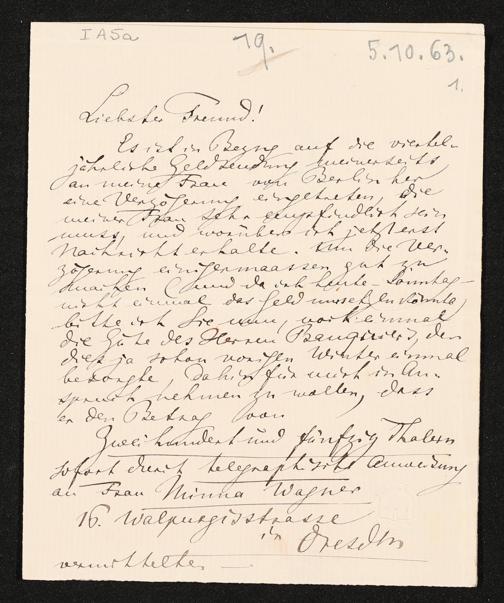 I A5a
19.
5.10.63.
1.
Liebster Freund!
Es ist in Bezug auf die viertel-
jährliche Geldsendung meinerseits
an meine Frau von Berlin her
eine Verzögerung eingetreten, die
meiner Frau sehr empfindlich sein
muss, und worüber ich jetzt erst
Nachricht erhalte. Um die Ver-
zögerung einigermaassen gut zu
machen (und da ich heute - Sonntag -
nicht einmal das Geld wechseln könnte)
bitte ich Sie nun, noch einmal
die Güte des Herren Banquier's, der
diess ja schon vorigen Winter einmal
besorgte, dahin für mich in An-
spruch nehmen zu wollen, dass
er den Betrag von
Zweihundert und fünfzig Thalern
sofort durch telegraphische Anweisung
an Frau Minna Wagner
16. Walpurgisstrasse
in Dresden
vermittelte. —